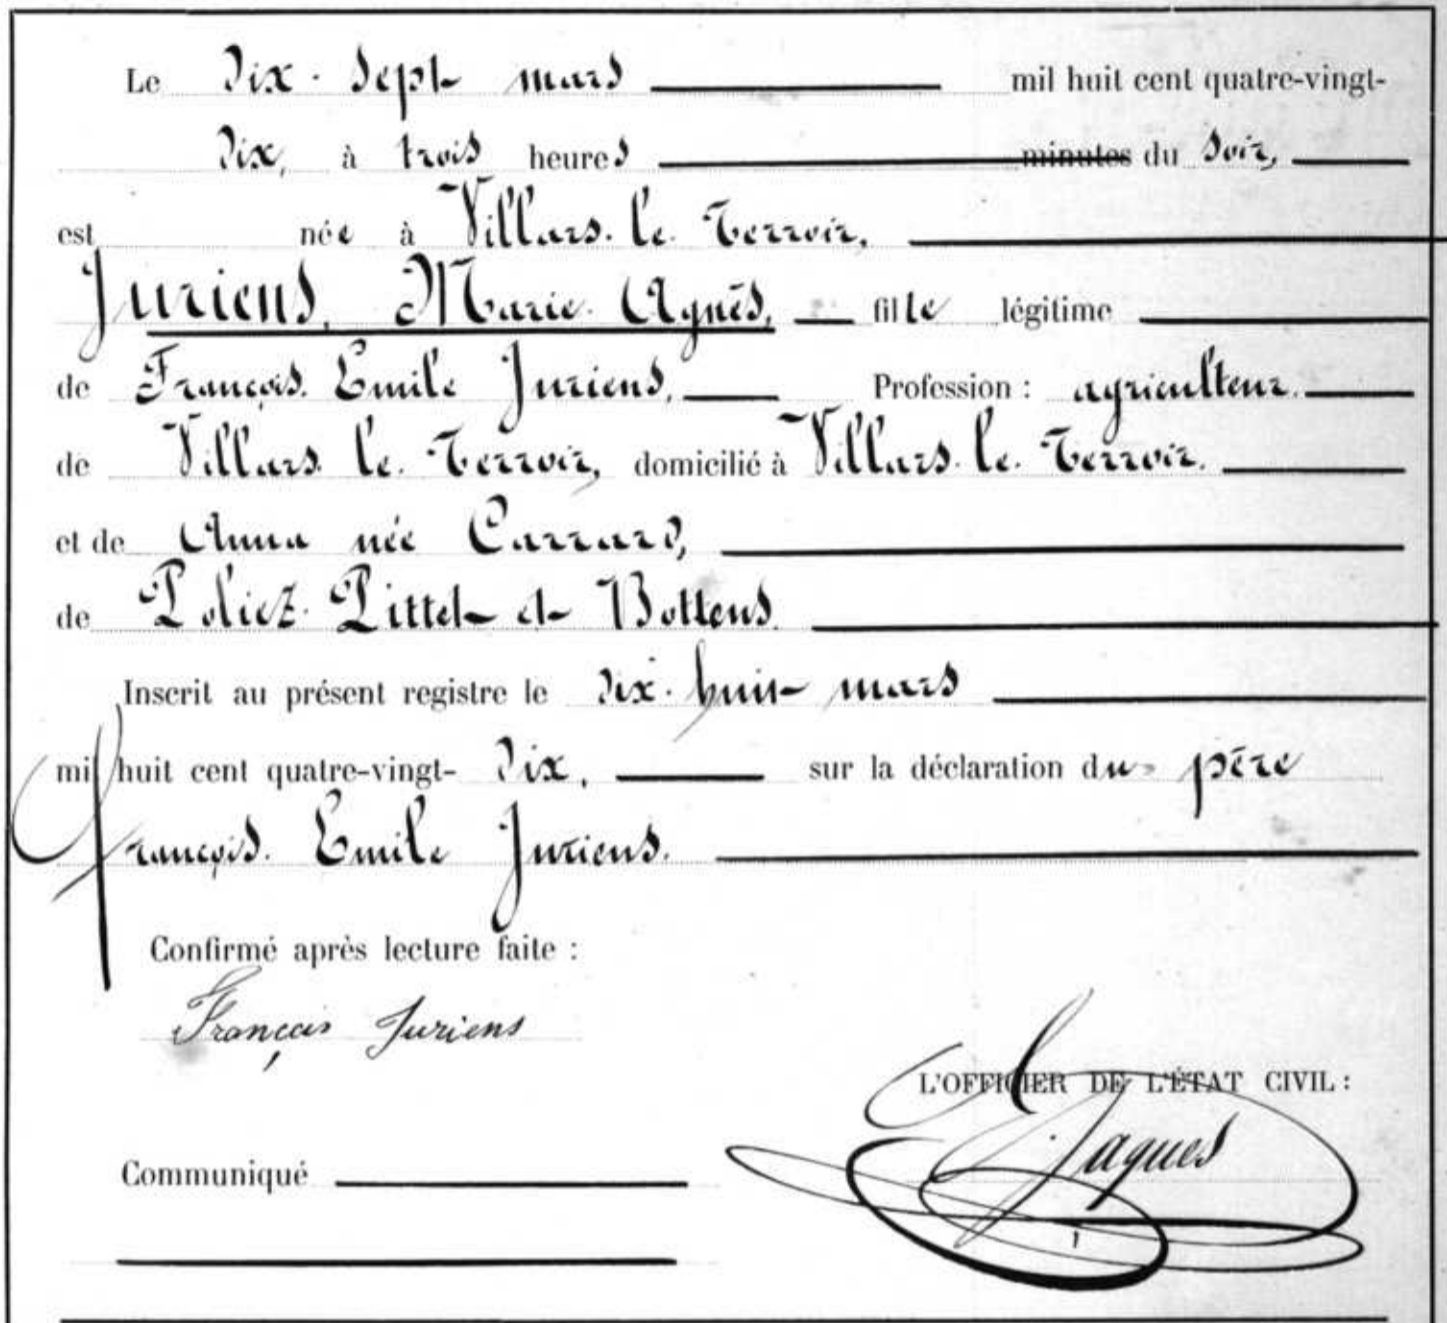 Le dix-sept mars mil huit cent quatre-vingt-
dix, à trois heures minutes du soir,
est née à Villars-le-Terroir,
Juriens, Marie-Agnès, fille légitime
de François-Emile Juriens, Profession : agriculteur.
de Villars-le-Terroir, domicilié à Villars-le-Terroir.
et de Anna née Carrard,
de Poliez-Pittet et Bottens.
Inscrit au présent registre le dix-huit mars
mil huit cent quatre-vingt- dix, sur la déclaration du père
François-Emile Juriens.
Confirmé après lecture faite :
François Juriens
L'OFFICIER DE L'ÉTAT CIVIL :
Jaques
Communiqué